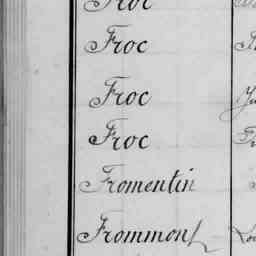 Froc
Froc
Froc
Froc
Fromentin
Frommont